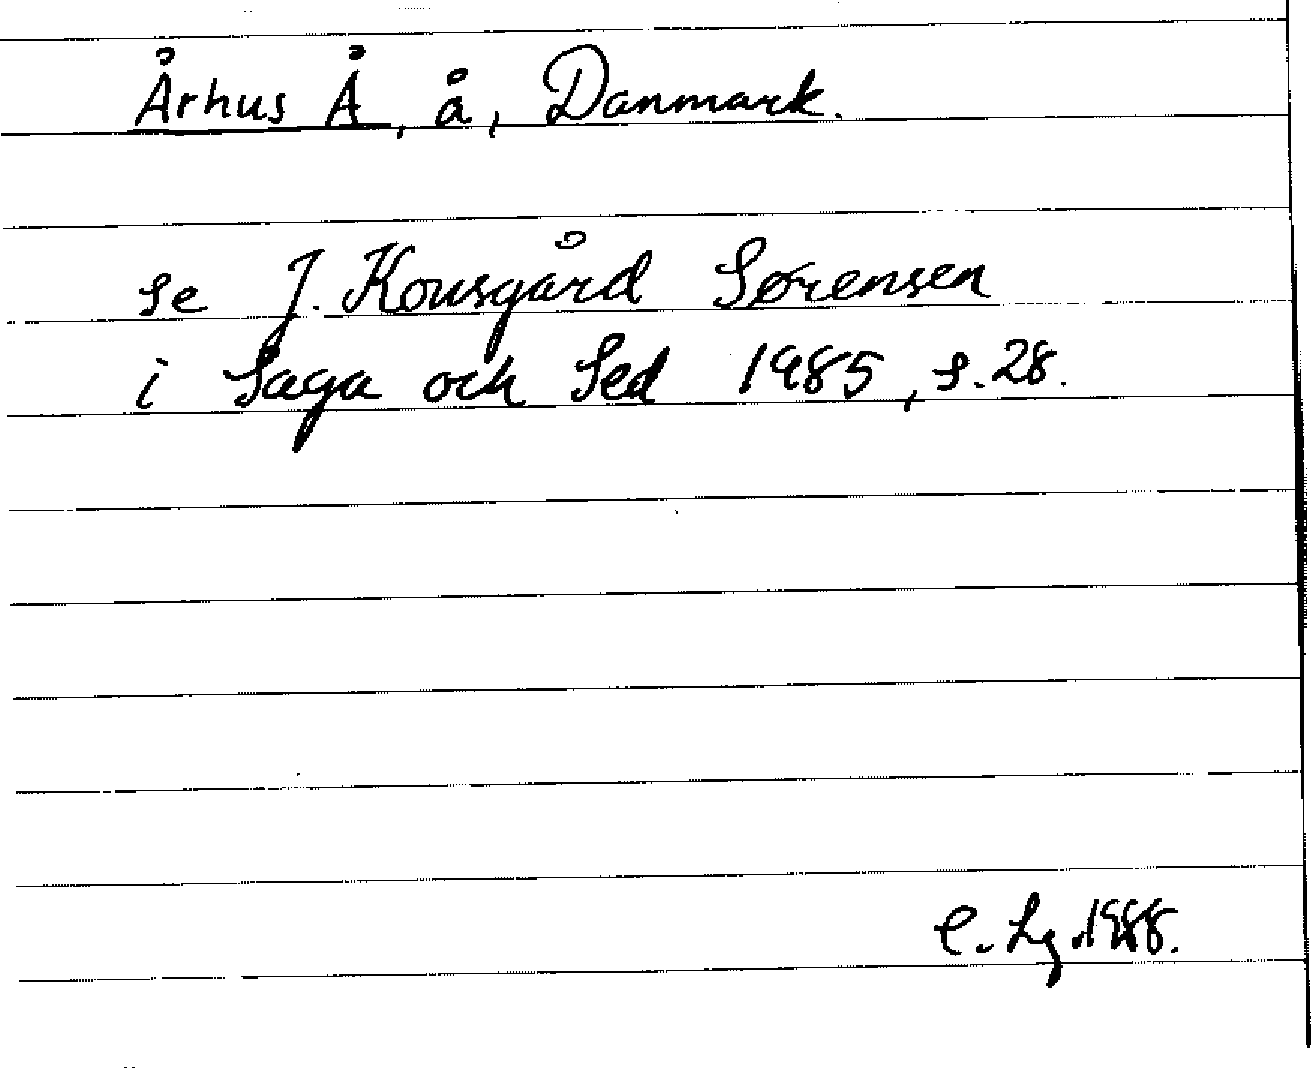 Århus Å, å, Danmark.
se J. Kousgård Sørensen
i Saga och Sed 1985, s. 28.
C. Lg. 1988.